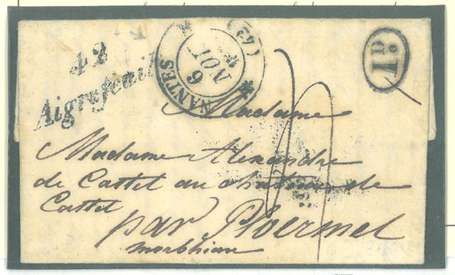 42
Aigrefeuille
NANTES 6 AOUT (42)
1D
Madame
Madame Alexandre
de Castel au château de
Castel
par Ploermel
morbihan